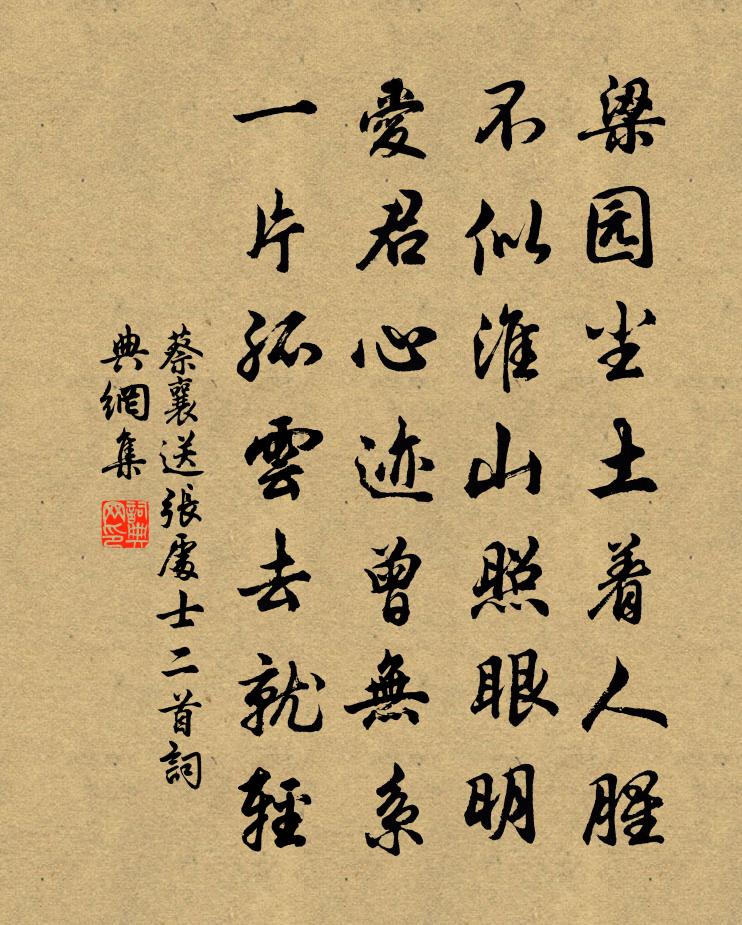 梁园尘土着人腥
不似淮山照眼明
愛君心迹曾無系
一片孤雲去就輕
蔡襄送張處士二首詞
典網集
詞典網印